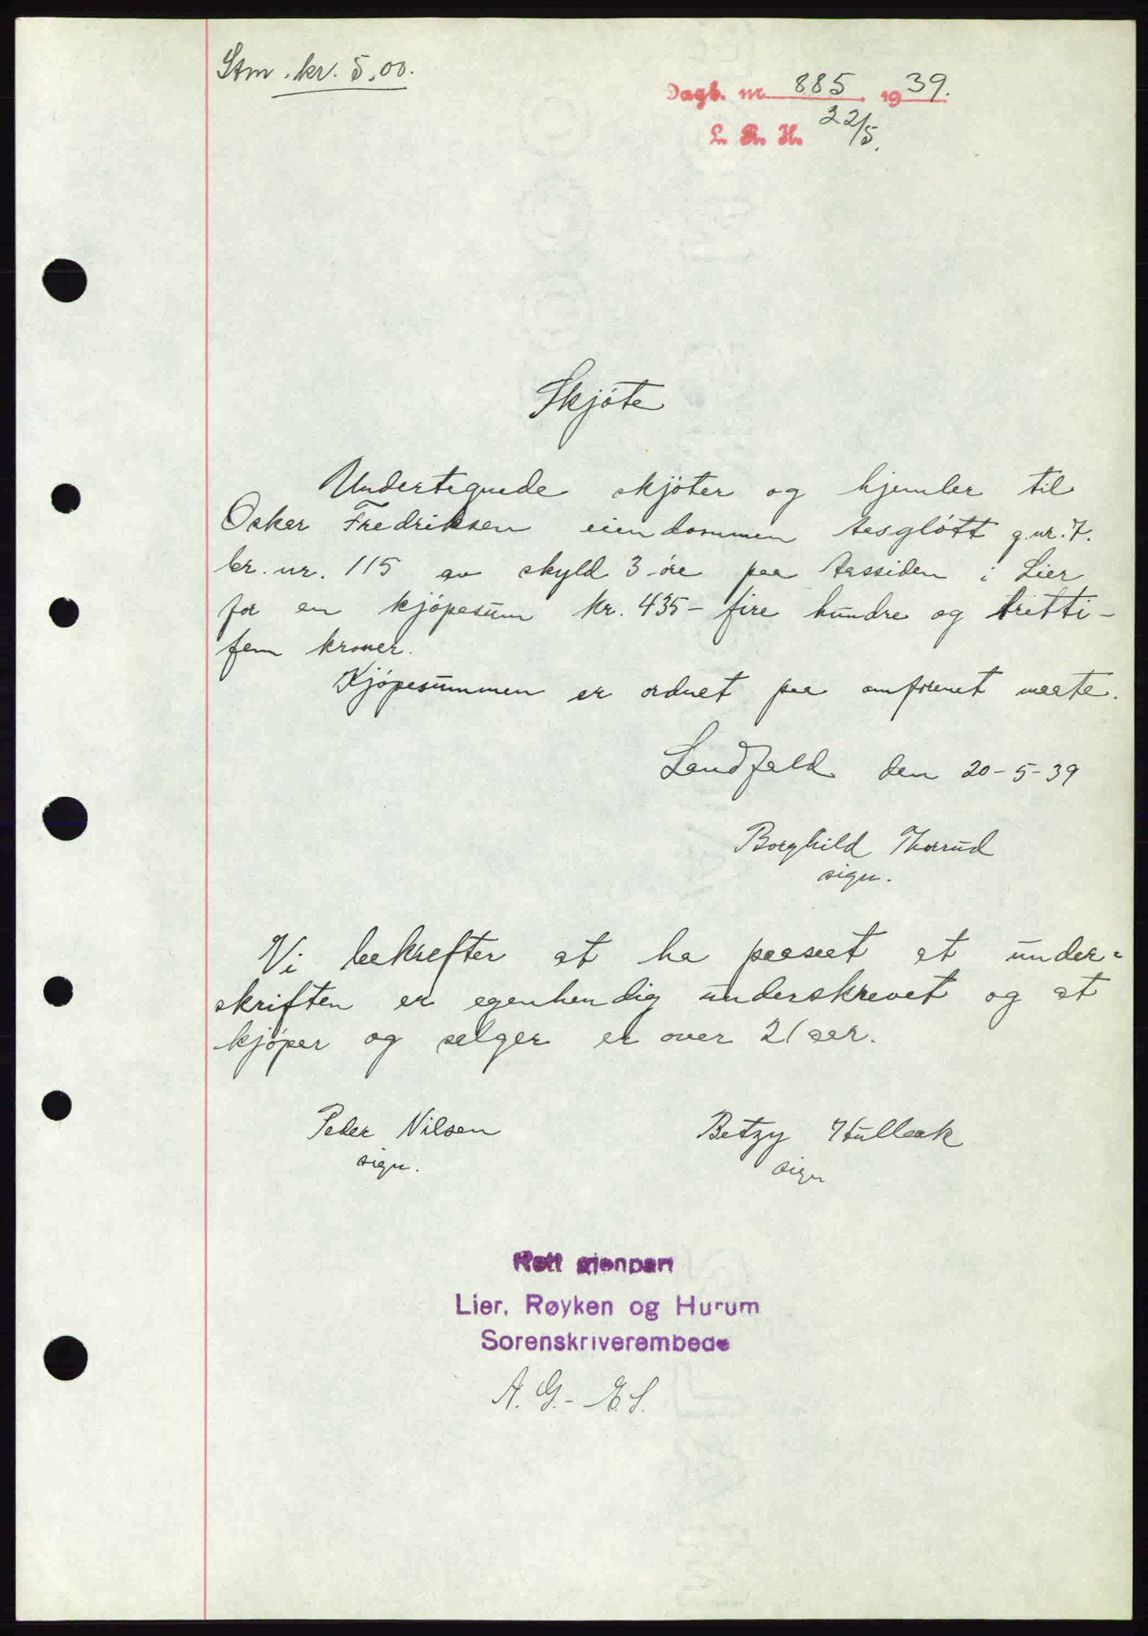 Stm. kr. 5.00.
Dagb. nr. 885. 1939.
L. R. H. 22/5.
Skjöte
Undertegnede skjöter og hjemler til
Oskar Fredriksen eiendommen Aasglött g.nr. 7.
br. nr. 115 av skyld 3 öre paa Aassiden i Lier
for en kjöpesum kr. 435 - fire hundre og tretti-
fem kroner.
Kjöpesummen er ordnet paa omforenet maate.
Landfald den 20-5-39
Borghild Thorud
sign.
Vi bekrefter at ha paaseet at under-
skriften er egenhendig underskrevet og at
kjöper og selger er over 21 aar.
Peder Nilsen Betzy Hullaak
sign. sign
Rett gjenpart
Lier, Røyken og Hurum
Sorenskriverembede
A. G. - E. S.